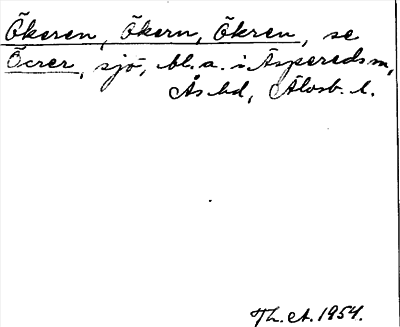 Ökeren, Ökern, Ökren, se
Öcrer, sjö, bl. a. i Äspereds sn,
Ås hd, Älvsb. l.
Th. A. 1954.